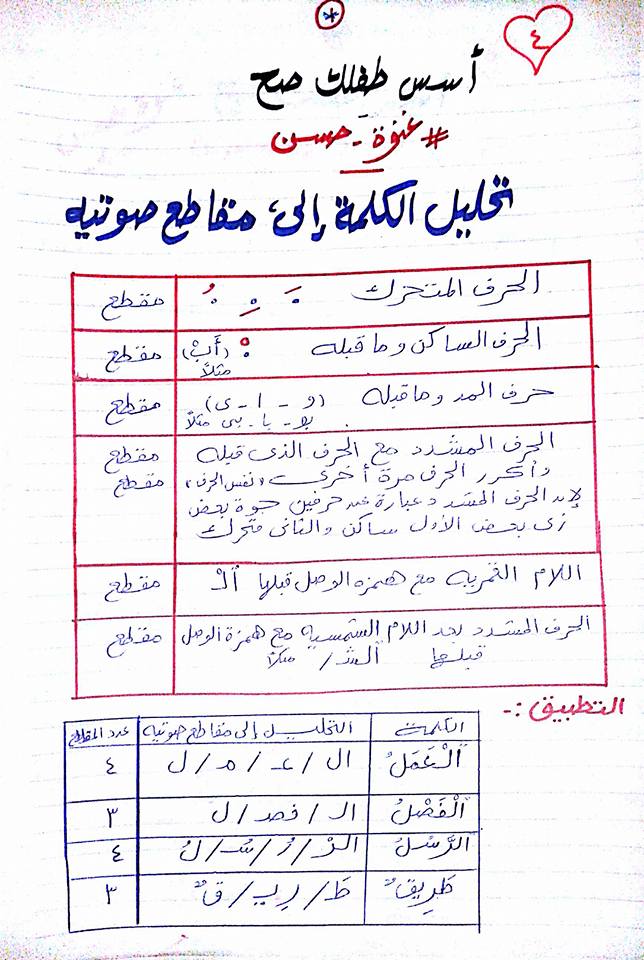 ٤
أسس طفلك صح
#غنوة_حسن
تحليل الكلمة إلى، مقاطع صوتيه
الحرف المتحرك َ ِ ُ مقطع
الحرف الساكن وما قبله ْ (أَبْ) مثلاً مقطع
حرف المد وما قبله (و - ا - ى) مقطع
بو - با - بى مثلاً
الحرف المشدد مع الحرف الذى قبله مقطع
وأكرر الحرف مرة أخرى "نفس الحرف" مقطع
لإن الحرف المشدد عبارة عن حرفين جوة بعض
زى بعض الأول ساكن والثانى متحرك
اللام القمريه مع همزه الوصل قبلها ألْ مقطع
الحرف المشدد بعد اللام الشمسيه مع همزة الوصل مقطع
قبلها الشْ / مثلاً
التطبيق :-
الكلمة التحليل إلى مقاطع صوتيه عدد المقاطع
اَلْعَمَلُ ال / عـ / مـ / ل ٤
اَلْفَصْلُ الـ / فصـ / ل ٣
الرُّسُلُ الرْ / رُ / سُـ / لُ ٤
طَرِيقٌ طَ / رِيـ / قٌ ٣